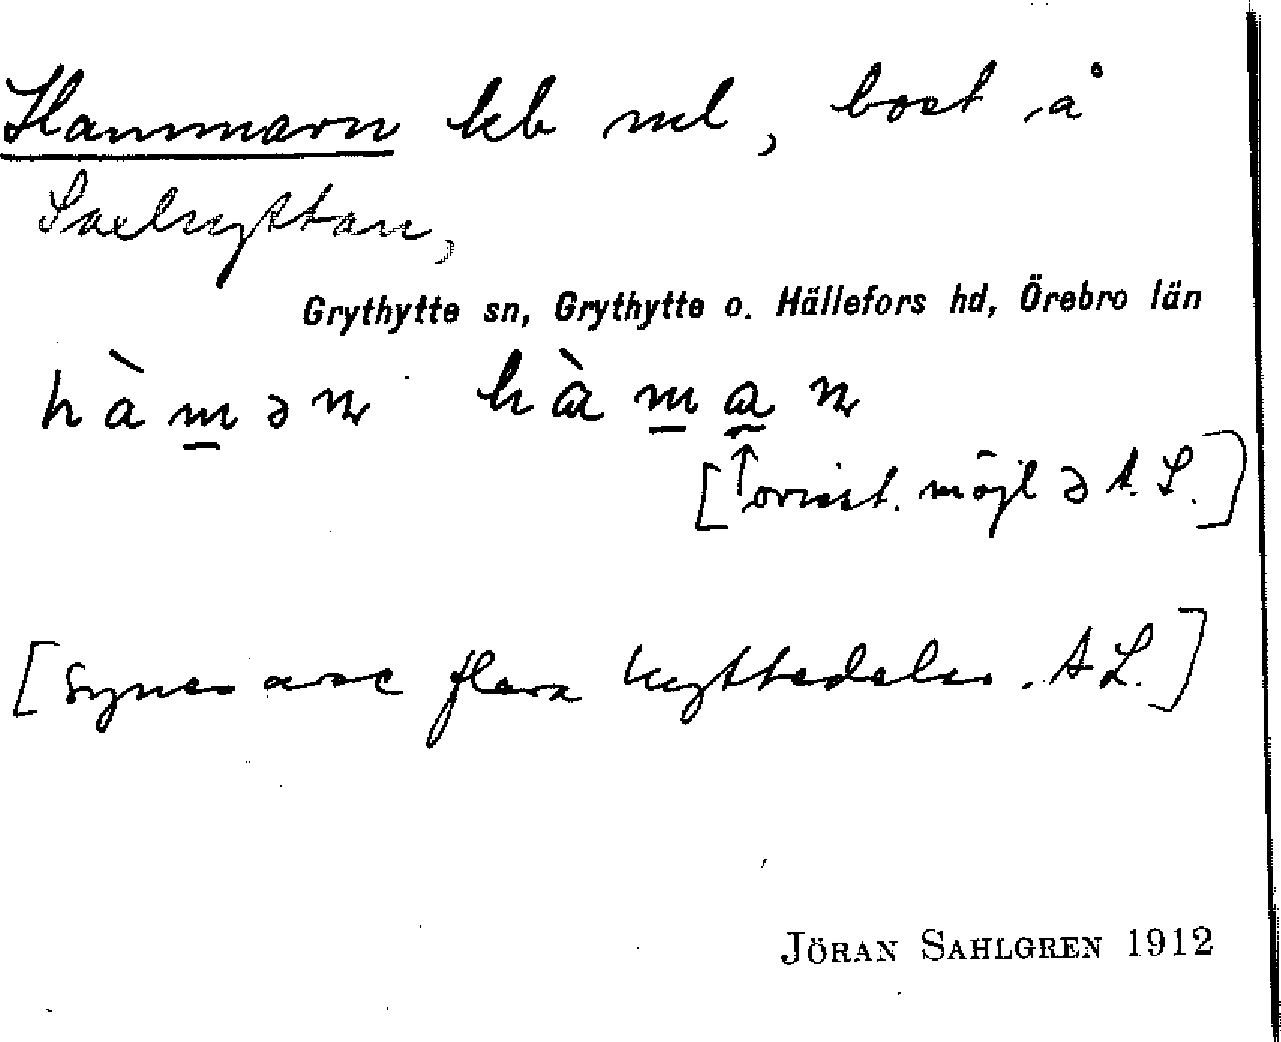 Hammarn hb ml, bost å
Saxhyttan,
Grythytte sn, Grythytte o. Hällefors hd, Örebro län
hàmən hàman
[↑ovisst. möjl ə A. L.]
[synes avse flera hyttedelar. A L.]
JÖRAN SAHLGREN 1912